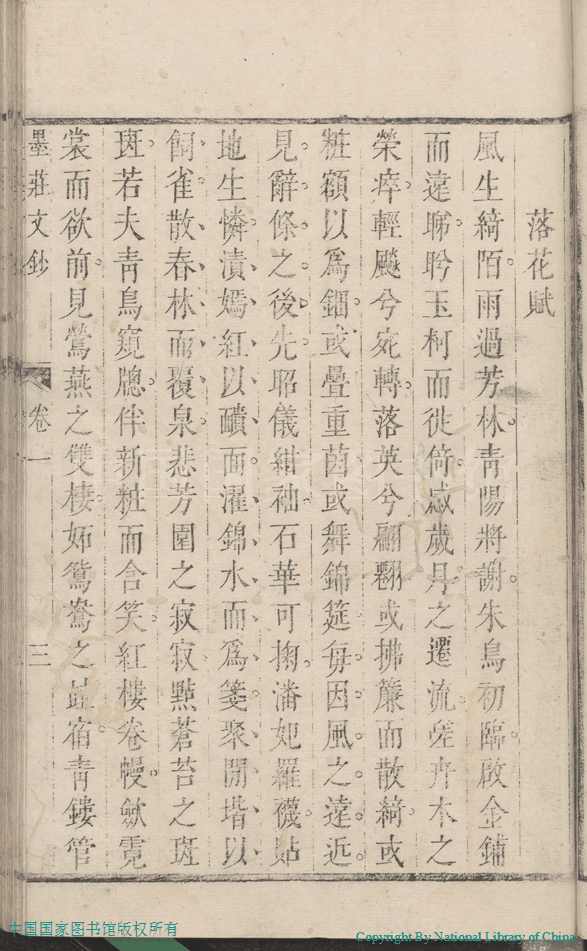 落花賦
風生綺陌雨過芳林靑陽將謝朱鳥初臨啟金鋪
而遠睇盻玉柯而徙倚感歲月之遷流嗟卉木之
榮瘁輕颷兮宛轉落英兮翩翾或拂簾而散綺或
粧額以爲鈿或疊重茵或舞錦筵每因風之遠近
見辭條之後先昭儀紺袖石華可掬潘妃羅襪貼
地生憐漬嫣紅以靧面濯錦水而爲箋聚閒堦以
飼雀散春林而覆泉悲芳園之寂寂㸃蒼苔之斑
斑若夫靑鳥窺牕伴新粧而含笑紅樓卷幔斂霓
裳而欲前見鶯燕之雙棲妬鴛鴦之並宿靑鏤管
墨莊文鈔
卷一
三
中国国家图书馆版权所有
Copyright By National Library of China